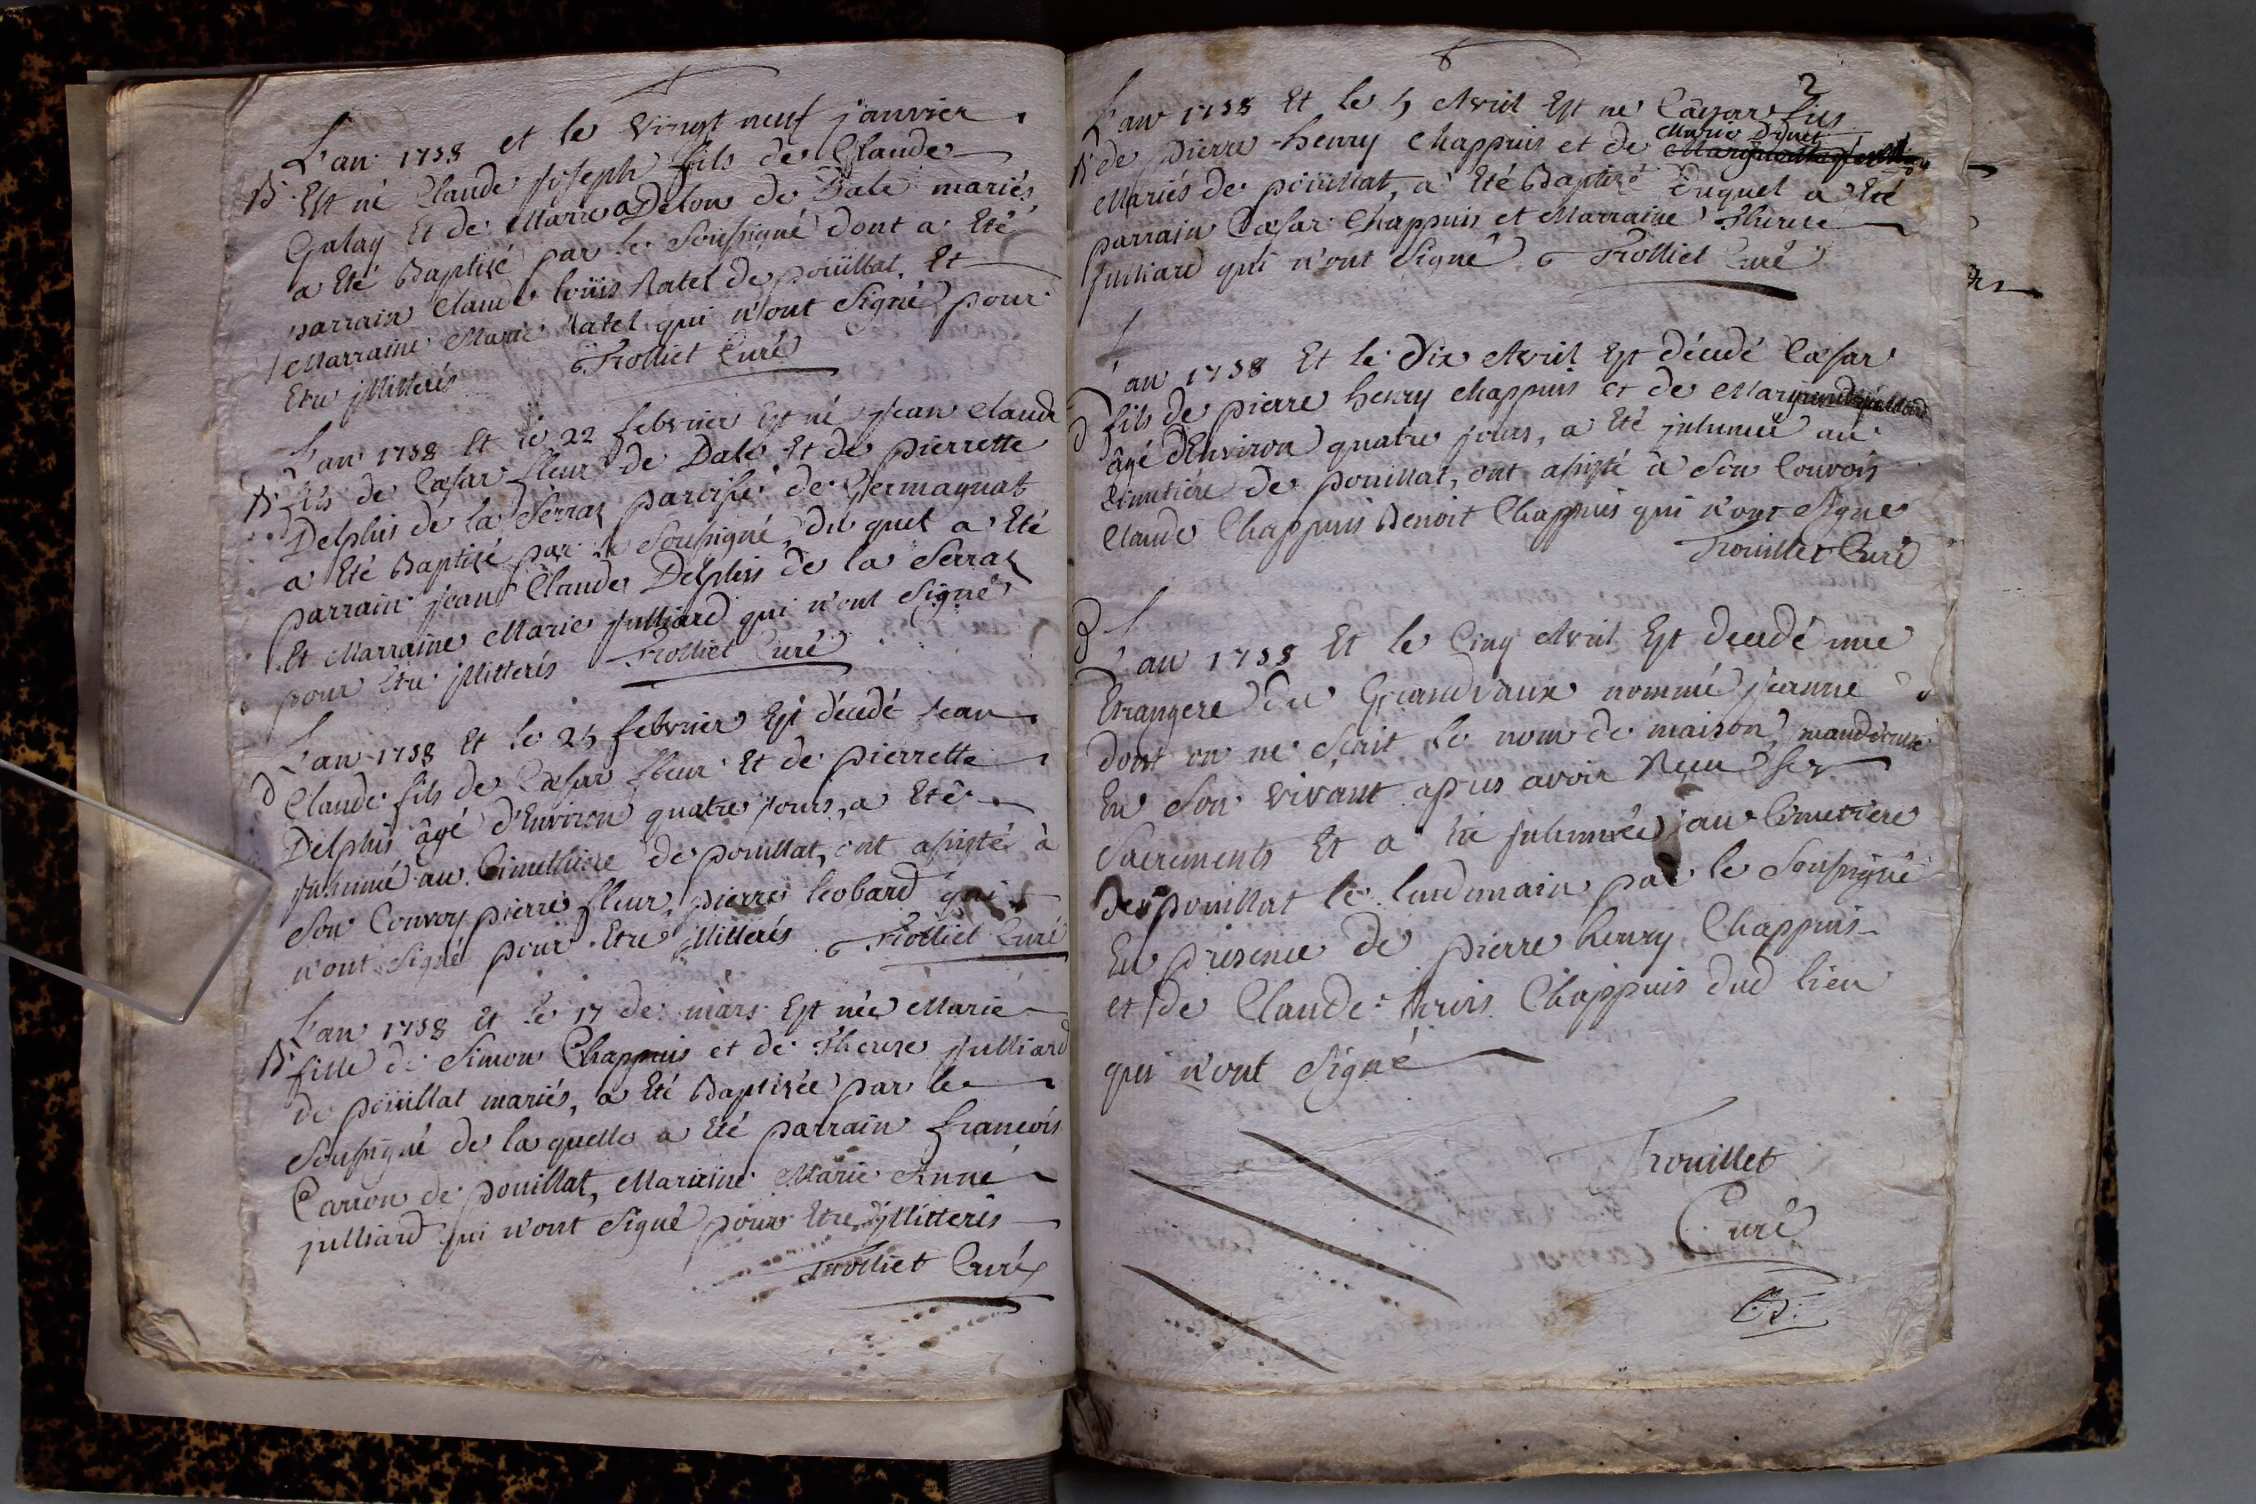 L'an 1738 et le vingt neuf janvier
B. Est né Claude Joseph fils de Claude
Galay Et de Marie Delon de Dale mariés
a Eté Baptisé par le Soussigné dont a Eté
parrain Claude loüis Ratel de poüillat, Et
Marraine Marie Ratel qui n'ont Signé pour
Etre jllitterés Trolliet Curé
L'an 1738 Et le 22 febvrier Est né Jean Claude
B. fils de Cæsar fleur de Dale Et de pierrette
Delphis de la Serraz paroisse de Germagnat
a Eté Baptisé par le Soussigné, du quel a Eté
parrain Jean Claude Delphis de la Serraz
Et Marraine Marie Julliard qui n'ont Signé
pour Etre jllitterés Trolliet Curé
L'an 1738 Et le 25 febvrier Est décédé Jean
d Claude fils de Cæsar fleur Et de pierrette
Delphis âgé d'Environ quatre jours, a Eté
jnhumé au Cimethiere de pouillat, ont assisté à
Son Convoy pierre fleur, pierre leobard qui
n'ont Signé pour Etre jllitterés Trolliet Curé
L'an 1738 Et le 17 de mars Est née Marie
B. fille de Simon Chappuis et de Therese Julliard
de poüillat mariés, a Eté Baptisée par le
Soussigné de laquelle a Eté parrain françois
Carron de pouillat, Marraine Marie Anne
julliard qui n'ont Signé pour Etre jllitterés
Trolliet Curé
2
L'an 1738 Et le 5 Avril Est né Cæsar fils
Marie
B. de pierre henry Chappuis et de
Mariés de poüillat, a Eté Baptisé duquel a Eté
parrain Cæsar Chappuis et Marraine Therese
Julliard qui n'ont Signé Trolliet Curé
L'an 1738 Et le Dix Avril Est décédé Cæsar
d fils de pierre henry chappuis et de
âgé d'Environ quatre jours, a Eté jnhumé au
Cimetiére de pouillat, ont assisté à Son Convois
Claude Chappuis Benoit Chappuis qui n'ont Signe
Trouillet Curé
d
L'an 1738 Et le Cinq Avril Est décédé une
Etrangere du Grandvaux nommé jeanne
dont on ne Sçait le nom de maison, mandiante
En Son vivant apres avoir Reçu ses
Sacrements Et a Eté jnhumée au Cimetiere
de pouillat le lendemain par le Soussigné
En presence de pierre henry Chappuis
et de Claude louis Chappuis dud lieu
qui n'ont Signé
Trouillet
Curé